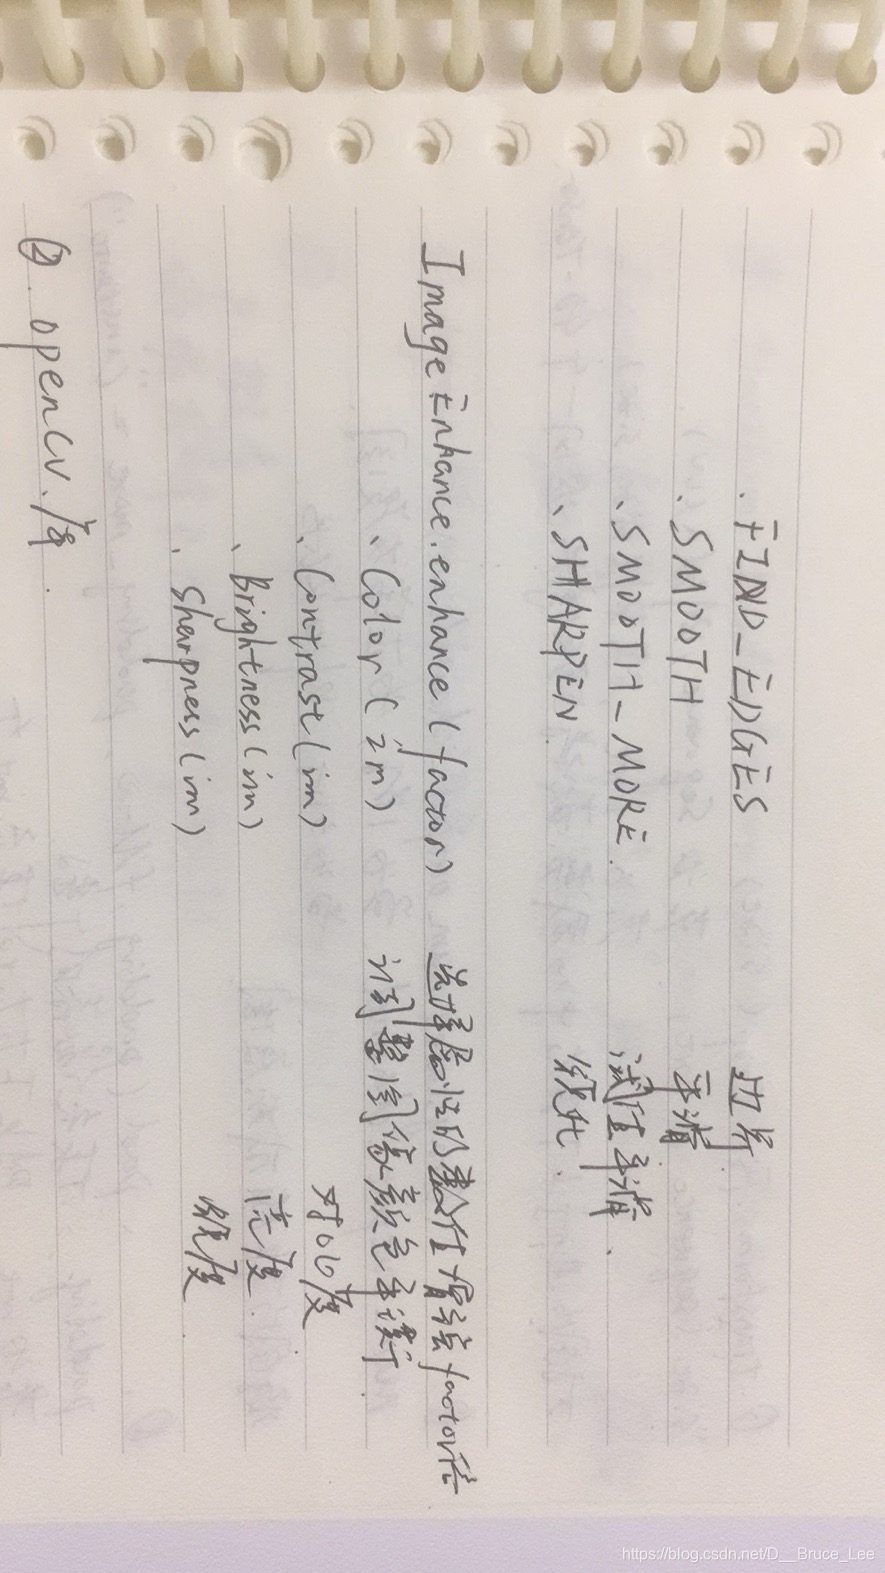 . FIND_EDGES 边界
. SMOOTH 平滑
、SMOOTH_MORE. 阈值平滑.
、SHARPEN 锐化.
ImageEnhance.enhance(factor) 选择属性的数值增强factor倍
、Color(im) 调整图像颜色平衡.
、Contrast(im) 对比度
、Brightness(im) 亮度.
、Sharpness(im) 锐度
②. openCV.库.
https://blog.csdn.net/D__Bruce_Lee